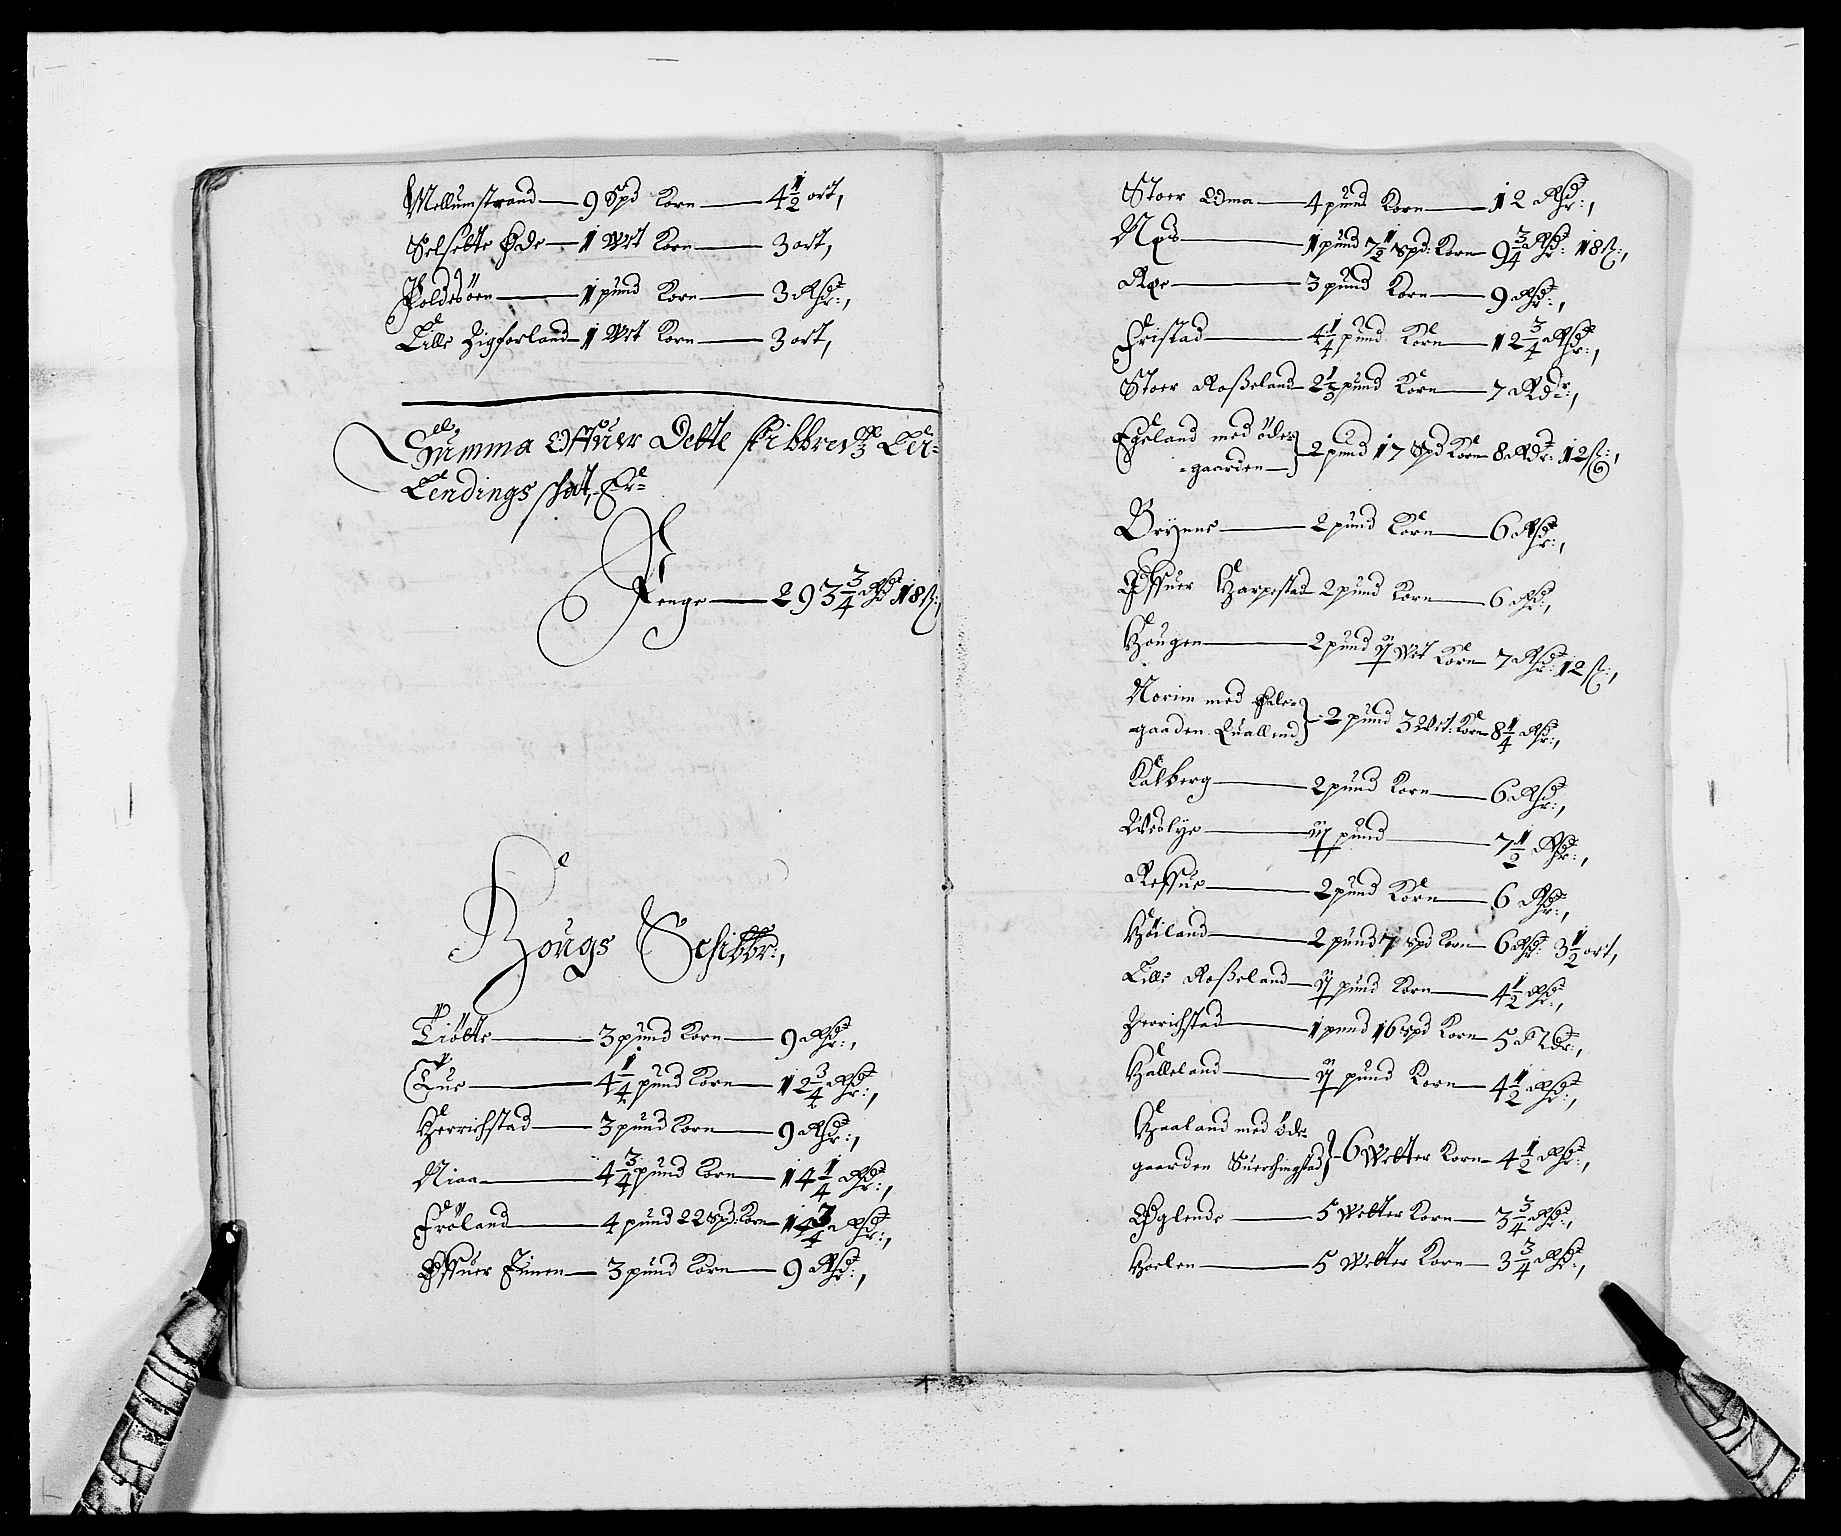 Mellumstrand — 9 Spd Korn — 4 1/2 ort,
Selsette Øde — 1 Wet Korn — 3 ort,
Foldesöen — 1 pund Korn — 3 Rdr:,
Lille Zigforland — 1 Wet Korn — 3 ort,
Summa Offuer Dette skibbredz Lei-
Lendings skat, Er-
Penge — 293 3/4 Rdr 18 ß:,
Hougs Schibbr:,
Tiötte — 3 pund Korn — 9 Rdr:,
Lue — 4 1/4 pund Korn — 12 3/4 Rdr:,
Herrichstad — 3 pund Korn — 9 Rdr:,
Niaa — 4 3/4 pund Korn — 14 1/4 Rdr:,
Fröland — 4 pund 22 Spd: Korn — Rdr:,
Øffuer Finnen — 3 pund Korn — 9 Rdr:,
Stoer Odma — 4 pund Korn — 12 Rdr:,
Nes — 1 pund 7 1/2 Spd: Korn — 9 3/4 Rdr: 18 ß:,
Røe — 3 pund Korn — 9 Rdr:,
Fristad — 4 1/4 pund Korn — 12 3/4 Rdr:,
Stoer Roßeland — 2 1/3 pund Korn — 7 Rdr:,
Egeland med öde-
gaarden — 2 pund 17 Spd Korn — 8 Rdr: 12 ß:,
Brynne — 2 pund Korn — 6 Rdr:,
Øffuer Harpestad — 2 pund Korn — 6 Rdr:,
Hougen — 2 pund ij Wet Korn — 7 Rdr: 12 ß:,
Norim med Øde-
gaaden Quallend — 2 pund 3 Wet: Korn — 8 1/4 Rdr:,
Kalberg — 2 pund Korn — 6 Rdr:,
Westlye — iij pund — 7 1/2 Rdr:,
Reffue — 2 pund Korn — 6 Rdr:,
Höiland — 2 pund 7 Spd Korn — 6 Rdr: 3 1/2 ort,
Lille Roßeland — ij pund Korn — 4 1/2 Rdr:,
Herrichstad — 1 pund 16 Spd Korn — 5 Rdr:,
Halleland — ij pund Korn — 4 1/2 Rdr:,
Haaland med öde-
gaarden — 6 Wetter Korn — 4 1/2 Rdr:,
Øglende — 5 Wetter Korn — 3 3/4 Rdr:,
Hoelen — 5 Wetter Korn — 3 3/4 Rdr:,